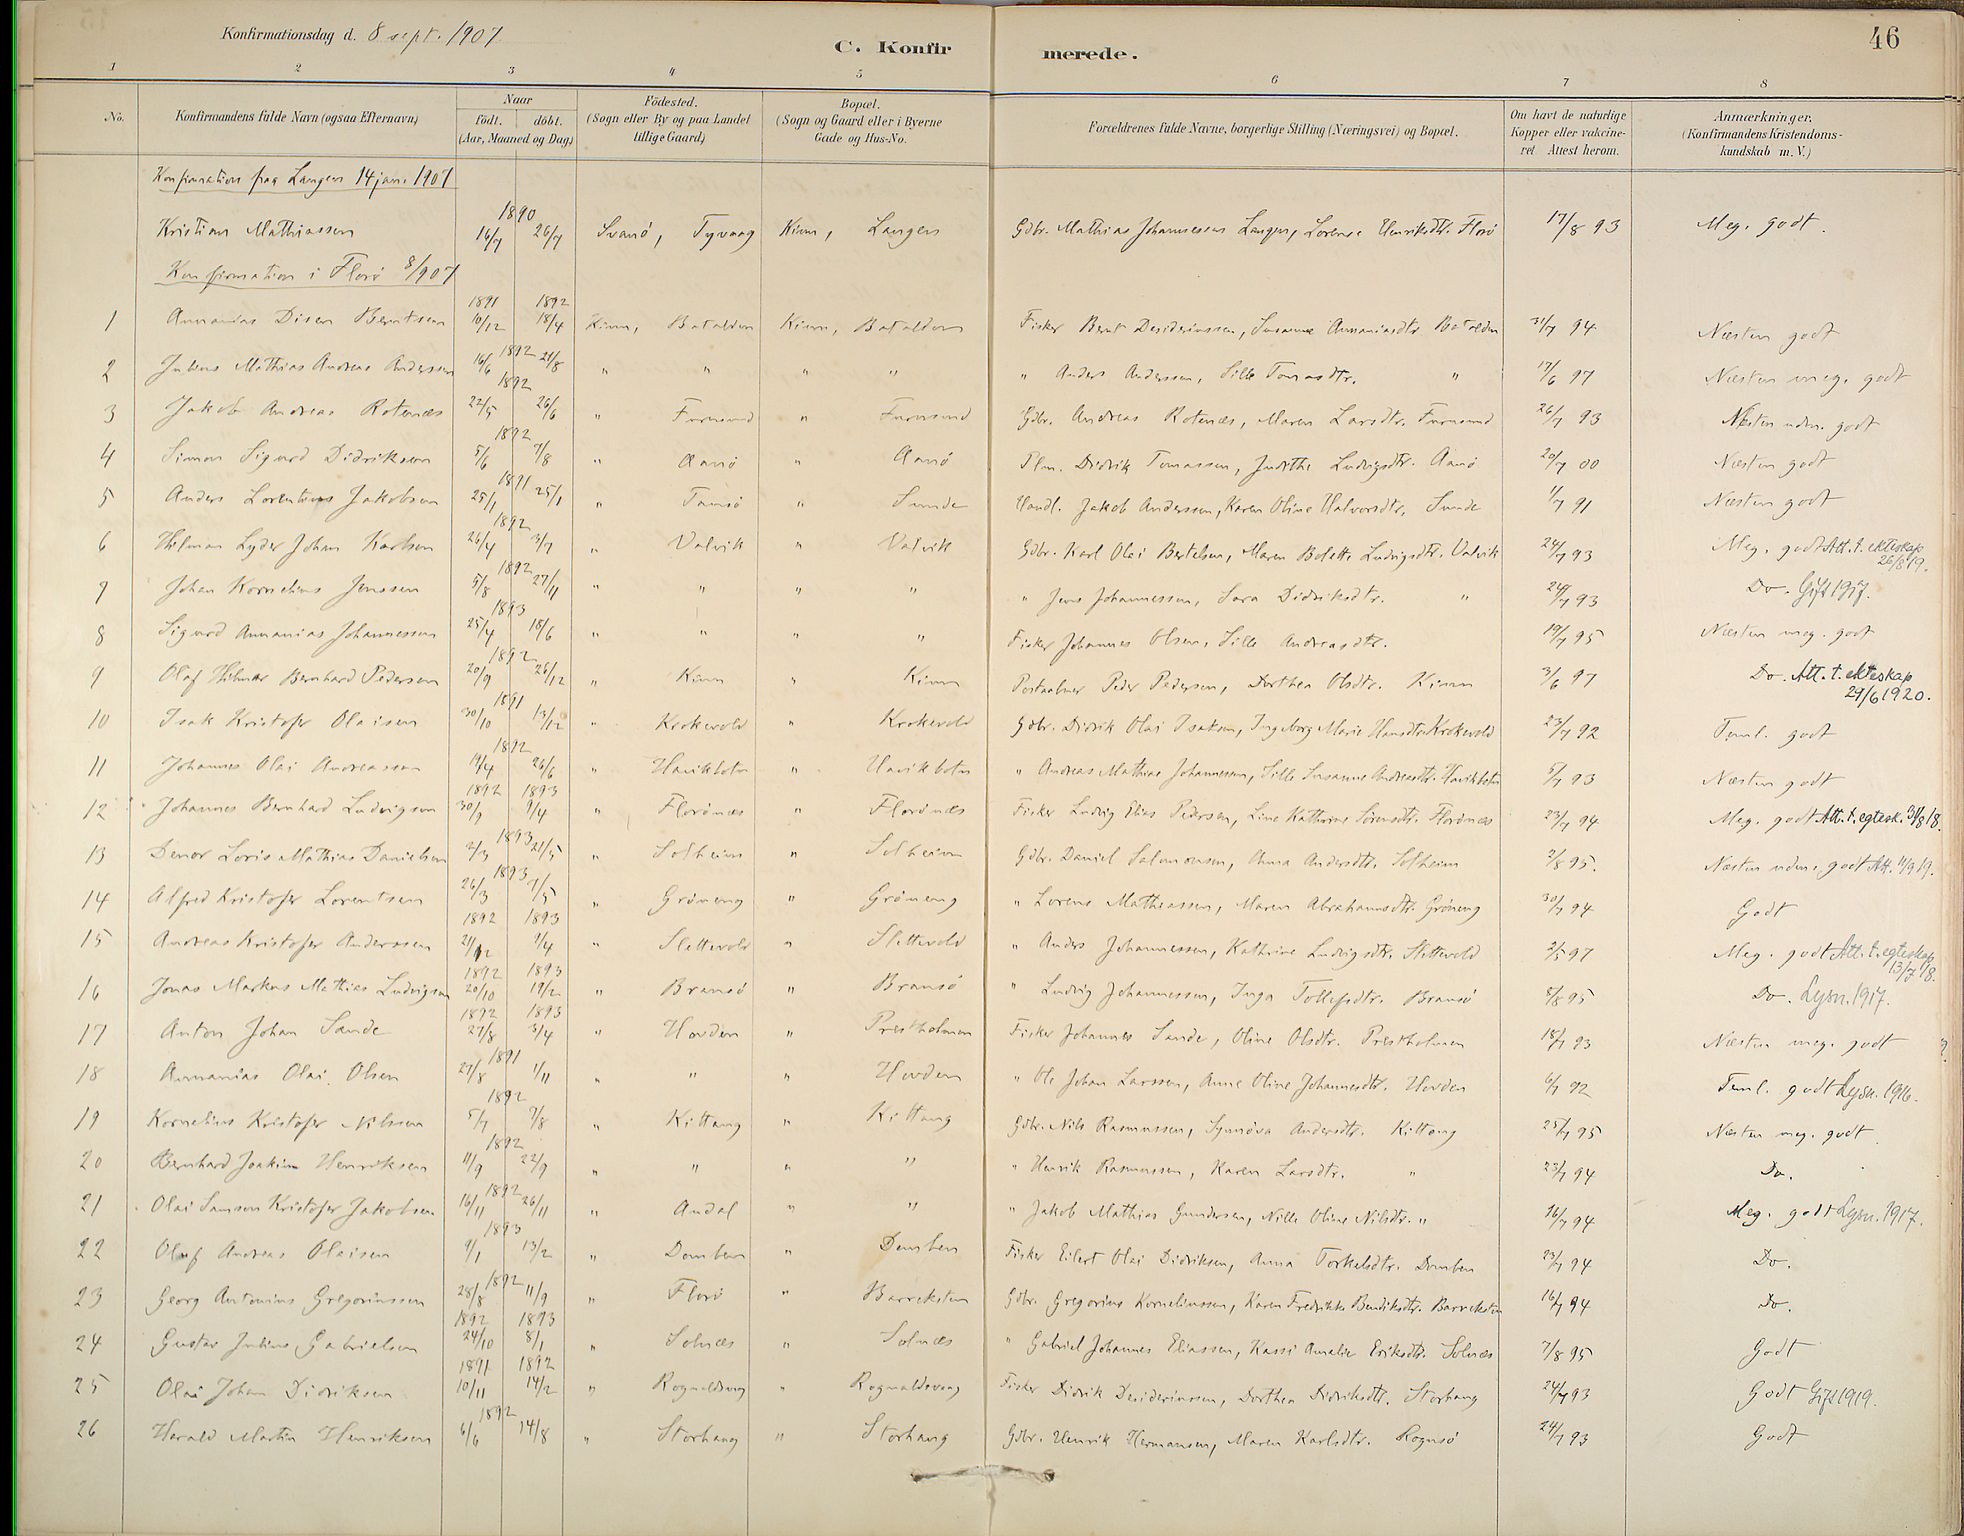 Konfirmationsdag d. 8 sept. 1907.
C. Konfir merede.
46
1 2 3 4 5 6 7 8
No. Konfirmandens fulde Navn (ogsaa Efternavn) Naar födt. döbt. (Aar, Maaned og Dag) Födested. (Sogn eller By og paa Landet tillige Gaard) Bopæl. (Sogn og Gaard eller i Byerne Gade og Hus-No. Forældrenes fulde Navne, borgerlige Stilling (Næringsvei) og Bopæl. Om havt de naturlige Kopper eller vakcineret Attest herom. Anmærkninger. (Konfirmandens Kristendomskundskab m. V.)
Konfirmation paa Langen 14 jan. 1907
Kristian Mathiassen 1890 16/7 26/7 Svanö, Tyvaag Kinn, Langen Gdbr. Mathias Johannessen Langen, Lorense Henriksdtr. Florö 17/8 93 Meg. godt.
Konfirmation i Florö 8/9 07
1 Annanias Disen Berntsen 1891 10/12 1892 18/4 Kinn, Batalden Kinn, Batalden Fisker Bernt Desideriussen, Susanne Annaniasdtr. Batalden 31/7 94 Næsten godt
2 Julius Mathias Andreas Anderssen 1892 16/6 21/8 " " " " " Anders Anderssen, Sille Tomasdtr. " 17/6 97 Næsten meg. godt
3 Jakob Andreas Rotenæs 1892 22/5 26/6 " Furusund " Furusund Gdbr. Andreas Rotenæs, Maren Larsdtr. Furusund 26/7 93 Næsten udm. godt
4 Simon Sigurd Didriksen 1892 5/6 7/8 " Aanö " Aanö Plm. Didrik Tomassen, Judithe Ludvigsdtr. Aanö 20/7 00 Næsten godt
5 Anders Lorentius Jakobsen 1891 25/1 25/1 " Tansö " Sunde Handl. Jakob Anderssen, Karen Oline Halvorsdtr. Sunde 1/7 91 Næsten godt
6 Hilmar Lyder Johan Karlsen 1892 26/4 3/7 " Valvik " Valvik Gdbr. Karl Olai Bertelsen, Maren Bolette Ludvigsdtr. Valvik 24/7 93 Meg. godt Att. t. ekteskap 26/8 19.
7 Johan Kornelius Jenssen 1892 5/8 27/11 " " " " " Jens Johannessen, Sara Didriksdtr. " 24/7 93 Do. Gift 1917.
8 Sigurd Annanias Johannessen 1893 25/4 18/6 " " " " Fisker Johannes Olsen, Sille Andreasdtr. 19/7 95 Næsten meg. godt
9 Olaf Hilmar Bernhard Pedersen 1892 20/9 25/12 " Kinn " Kinn Postaabner Peder Pedersen, Dorthea Olsdtr. Kinn 3/6 97 Do. Att. t. ekteskap 29/6 1920.
10 Isak Kristofer Olaisen 1891 30/10 13/12 " Krokevold " Krokevold Gdbr. Didrik Olai Isaksen, Ingeborg Marie Hansdtr. Krokevold 23/7 92 Teml. godt
11 Johannes Olai Andreassen 1892 19/4 26/6 " Havikbotn " Havikbotn " Andreas Mathias Johannessen, Sille Susanne Andreasdtr. Havikbotn 5/7 93 Næsten godt
12 Johannes Bernhard Ludvigsen 1892 30/9 1893 9/4 " Florönæs " Florönæs Fisker Ludvig Elias Pedersen, Line Kathrine Sörensdtr. Florönæs 23/7 94 Meg. godt Att. t. egtesk. 31/8 18.
13 Denor Loris Mathias Danielsen 1893 2/3 21/5 " Solheim " Solheim Gdbr. Daniel Salomonsen, Anna Andersdtr. Solheim 2/8 95. Næsten udm. godt Att. 11/9 19.
14 Alfred Kristofer Lorentsen 1893 26/3 7/5 " Gröneng " Gröneng " Lorens Mathiassen, Maren Abrahamsdtr. Gröneng 30/7 94 Godt
15 Andreas Kristofer Anderssen 1892 21/12 1893 9/4 " Slettevold " Slettevold " Anders Johannessen, Kathrine Ludvigsdtr. Slettevold 2/5 97 Meg. godt Att. t. egteskap 13/7 18.
16 Jonas Markus Mathias Ludvigsen 1892 20/10 1893 19/2 " Bransö " Bransö " Ludvig Johannessen, Inga Tollefsdtr. Bransö 5/8 95 Do. Lysn. 1917.
17 Anton Johan Sande 1892 27/8 1893 3/4 " Hovden " Prestholmen Fisker Johannes Sande, Oline Olsdtr. Prestholmen 18/7 93 Næsten meg. godt
18 Annanias Olai Olsen 1891 27/8 1/11 " " " Hovden " Ole Johan Larssen, Anne Oline Johannesdtr. Hovden 6/7 92 Teml. godt Lysn. 1916.
19 Kornelius Kristofer Nilssen 1892 5/7 7/8 " Kittang " Kittang Gdbr. Nils Rasmussen, Synnöva Andersdtr. Kittang 25/7 95 Næsten meg. godt.
20 Bernhard Joakim Henriksen 1892 11/9 22/9 " " " " " Henrik Rasmussen, Karen Larsdtr. " 23/7 94 Do.
21 Olai Samson Kristofer Jakobsen 1892 16/11 26/11 " Andal " " " Jakob Mathias Gundersen, Nille Oline Nilsdtr. " 16/7 94 Meg. godt Lysn. 1917.
22 Olaf Andreas Olaisen 1893 9/1 13/2 " Domben " Domben Fisker Eilert Olai Didriksen, Anna Torkelsdtr. Domben 23/7 94 Do.
23 Georg Antonius Gregoriussen 1892 28/8 11/9 " Florö " Barreksten Gdbr. Gregorius Korneliussen, Karen Fredrikke Bendiksdtr. Barreksten 16/7 94 Do.
24 Gustav Julius Gabrielsen 1892 24/10 1893 8/1 " Solnæs " Solnæs " Gabriel Johannes Eliassen, Kassi Amalie Eriksdtr. Solnæs 7/8 95 Godt
25 Olai Johan Didriksen 1891 10/11 1892 14/2 " Rognaldsvaag " Rognaldsvaag Fisker Didrik Desideriussen, Dorthea Didriksdtr. Storhaug 24/7 93 Godt Gift 1919.
26 Harald Martin Henriksen 1892 6/6 14/8 " Storhaug " Storhaug Gdbr. Henrik Hermansen, Maren Karlsdtr. Rognsö 24/7 93 Godt